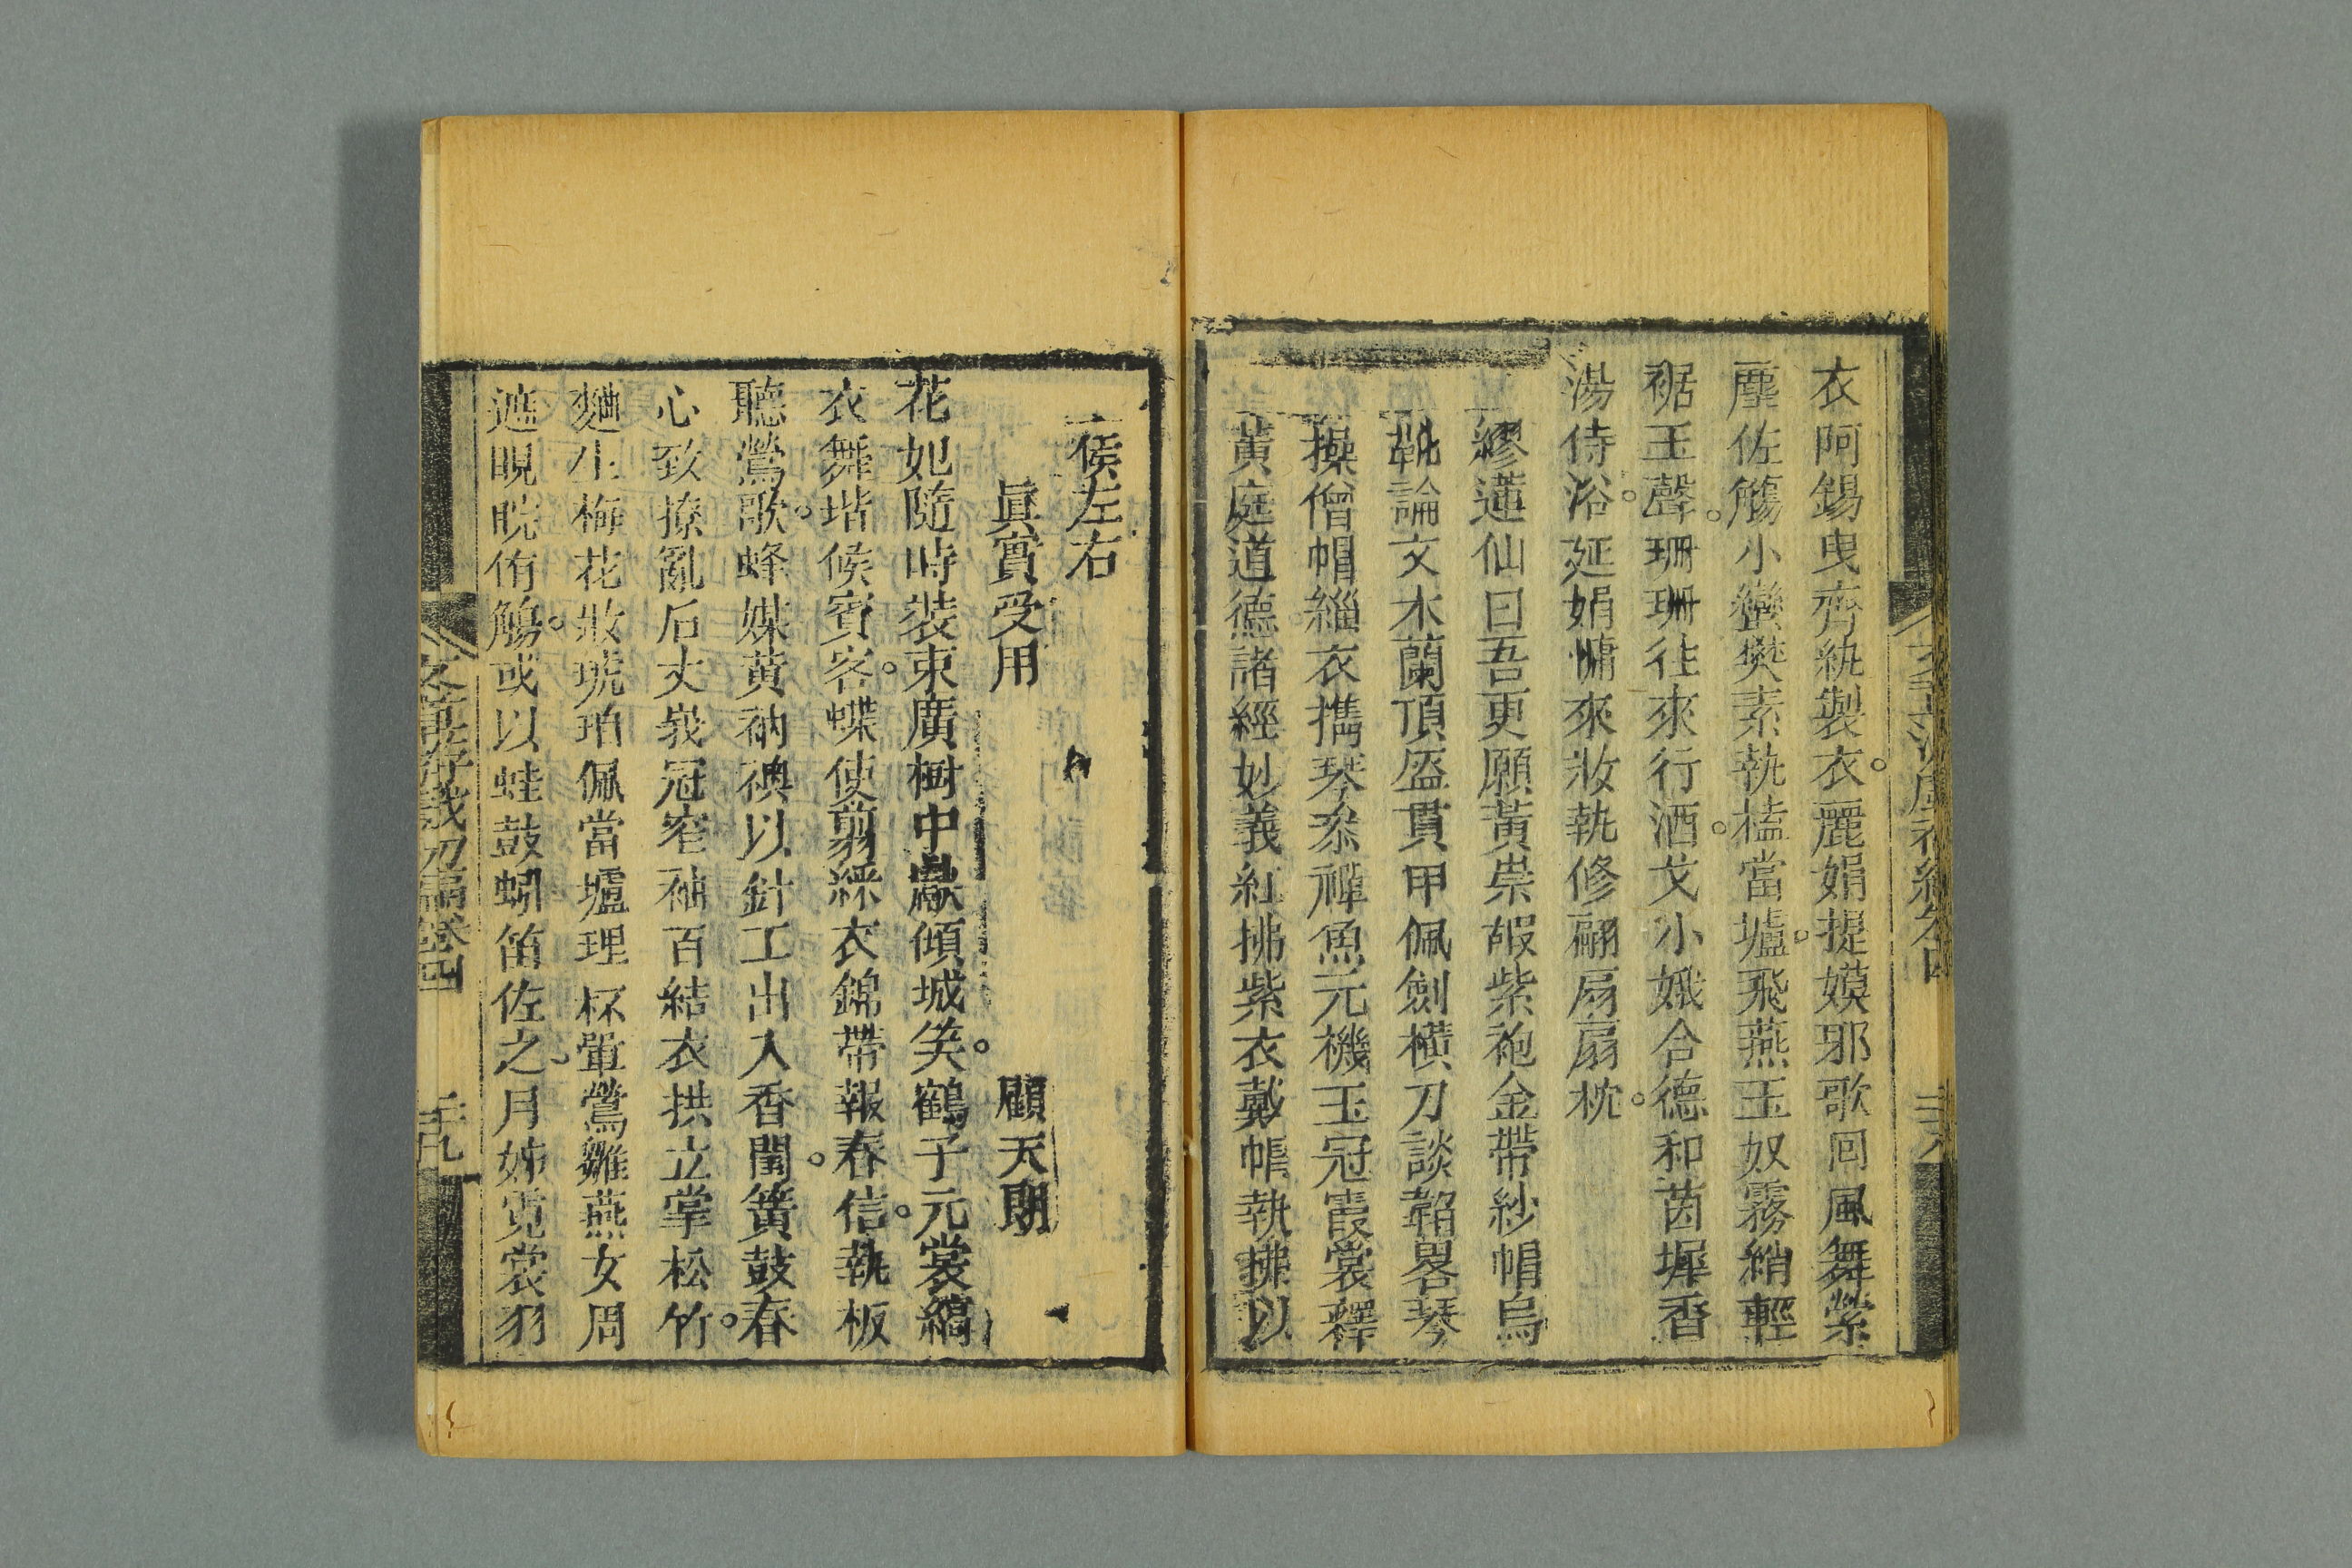 衣阿錫曳齊紈製衣。麗娟提嫫邪歌回風舞縈
塵佐觴小蠻樊素執榼當壚。飛燕玉奴霧綃輕
裾玉聲。珊珊往來行酒。戈小娥合德和茵墀香
湯侍浴。延娟慵來妝執修翮扇扇枕。
繆蓮仙曰吾更願黃祟嘏紫袍金帶紗帽烏
靴論文木蘭頂盔貫甲佩劍橫刀談韜畧琴
操僧帽緇衣攜琴叅禪魚元機玉冠霞裳釋
黃庭道德諸經妙義紅拂紫衣戴帷執拂以
侯左右
眞實受用
顧天朗
花如隨時裝束廣樹中獻傾城笑。鶴子元裳縞
衣舞堦候賓客。蝶使翦綵衣錦帶報春信。執板
聽鶯歌。蜂媒黄衲襖以針工出入香閨。簧鼓春
心致撩亂后丈峩冠窄袖百結衣拱立掌松竹。
麯生梅花妝琥珀佩當壚理杯斝鶯雛燕女周
遮睍睆侑觴。或以蛙鼓蚓笛佐之。月姊霓裳羽
卷四